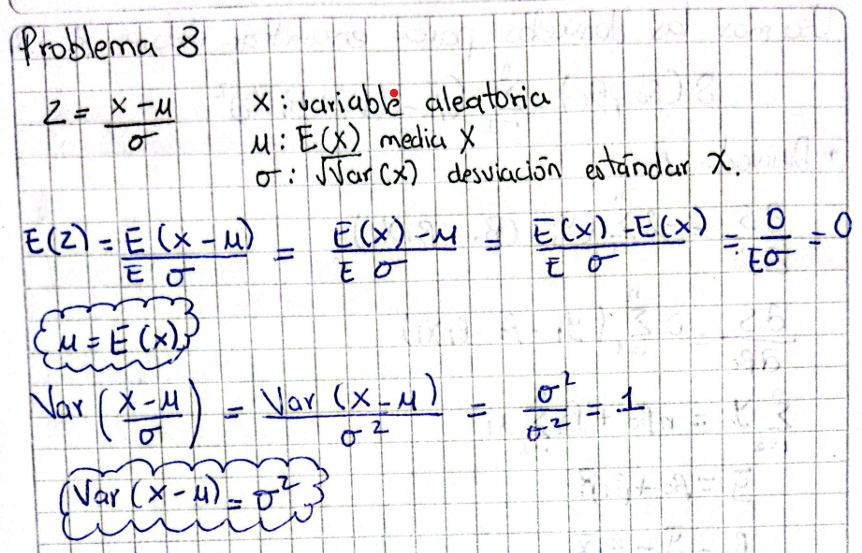 Problema 8
Z = (x - μ)/σ    x : variable aleatoria
μ : E(x) media X
σ : √Var(x) desviación estándar X.
E(Z) = E(x - μ)/E σ = E(x) - μ/E σ = E(x) - E(x)/E σ = 0/Eσ = 0
μ = E(x)
Var((x - μ)/σ) = Var(x - μ)/σ² = σ²/σ² = 1
Var(x - μ) = σ²